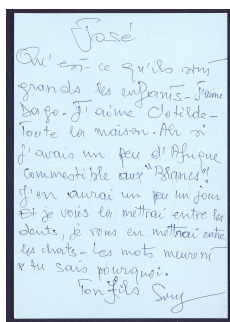 José
Qu'est-ce qu'ils sont
grands les enfants - J'aime
Dago. J'aime Clotilde -
Toute la maison. Ah si
j'avais un peu d'Afrique
Commestible aux "Blancs"!
J'en aurai un peu un jour
Et je vous la mettrai entre les
dents, je vous en mettrai entre
les chants - Les mots meurent
tu sais pourquoi.
Ton fils Sony